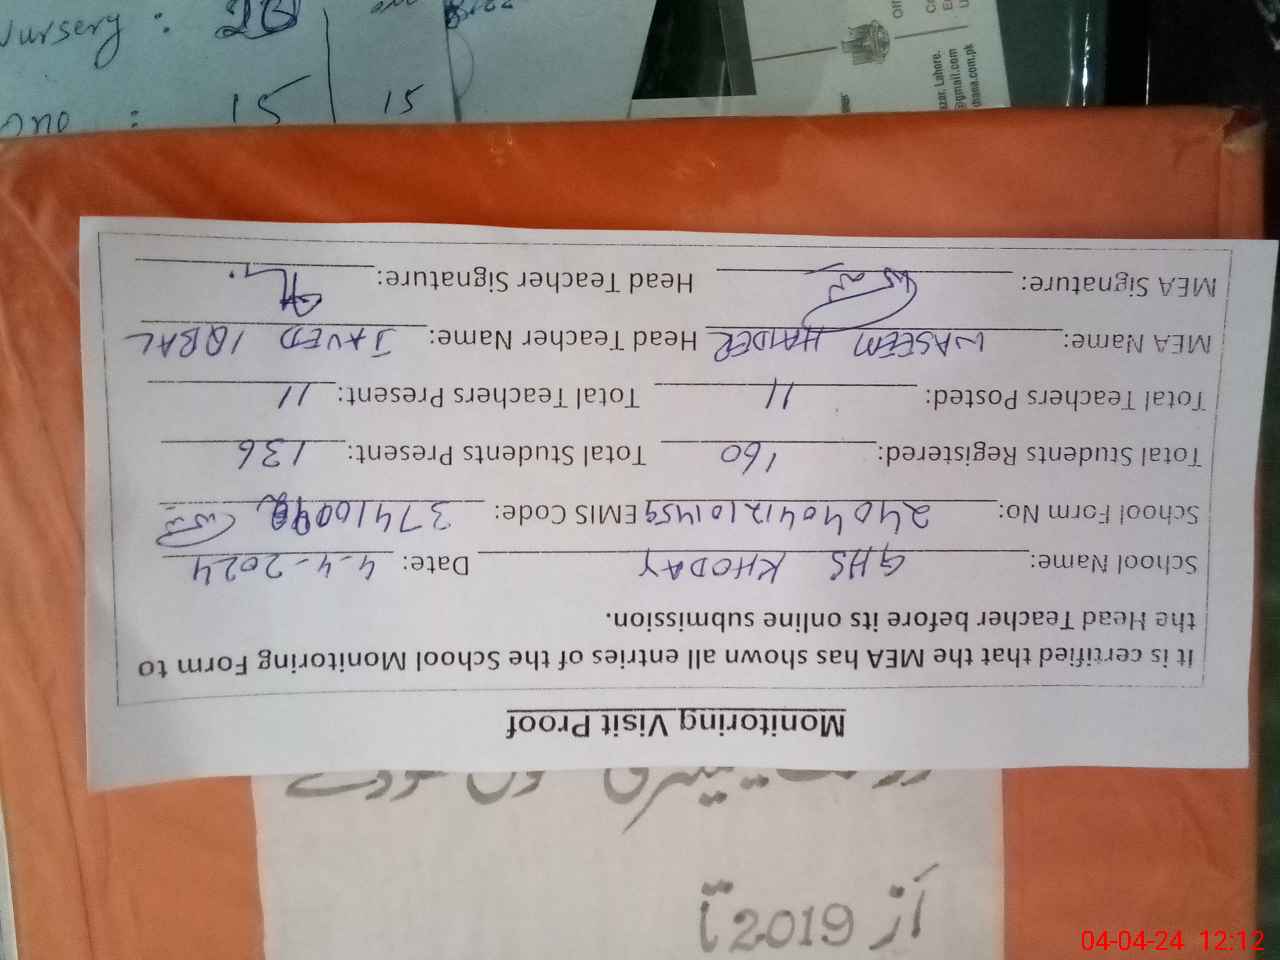 Nursery :
15 15
Lahore.
@gmail.com
Monitoring Visit Proof
It is certified that the MEA has shown all entries of the School Monitoring Form to
the Head Teacher before its online submission.
School Name: GHS KHODAY Date: 4-4-2024
School Form No: 24040412101459 EMIS Code:
Total Students Registered: 160 Total Students Present: 136
Total Teachers Posted: 11 Total Teachers Present: 11
MEA Name: WASEEM HAIDER Head Teacher Name: JAVED IQBAL
MEA Signature: Head Teacher Signature:
از 2019 تا
04-04-24 12:12